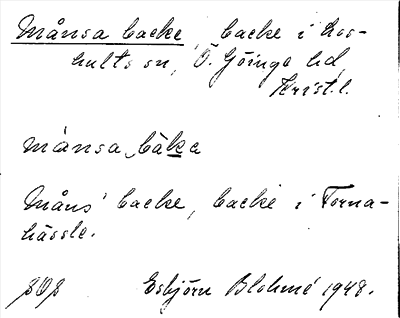 Månsa backe, backe i Los-
hults sn, Ö. Göinge hd,
Krist.l.
månsa bàka
Måns' backe, backe i Torna-
hässle.
Esbjörn Blohmé 1948.